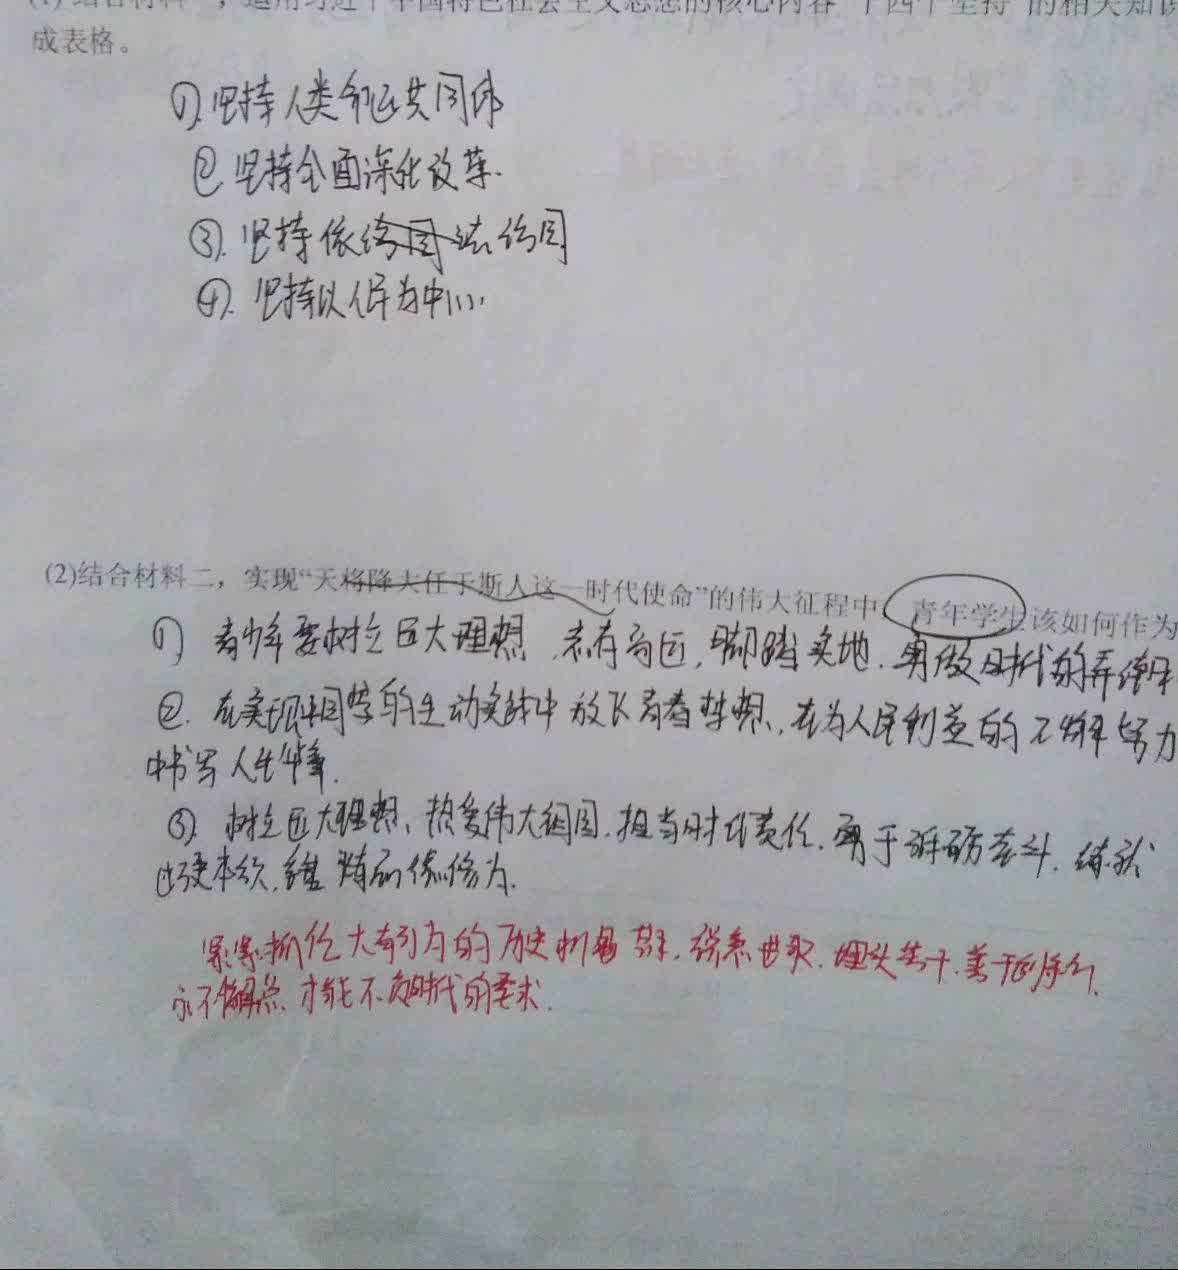 (1)结合材料一，运用习近平中国特色社会主义思想的核心内容"十四个坚持"的相关知识
成表格。
①坚持人类命运共同体
②坚持全面深化改革.
③.坚持依法治国
④.坚持以人民为中心.
(2)结合材料二，实现“天将降大任于斯人这一时代使命”的伟大征程中，青年学生该如何作为
① 青少年要树立远大理想,志存高远,脚踏实地.勇做时代的弄潮儿
②.在实现中国梦的生动实践中放飞青春梦想,在为人民利益的不懈努力
中书写人生华章.
③.树立远大理想、热爱伟大祖国.担当时代责任.勇于砥砺奋斗.练就
过硬本领.锤炼品德修为.
紧紧抓住大有可为的历史机遇期.锐意进取.埋头苦干.善于
永不懈怠 才能不负时代的要求.